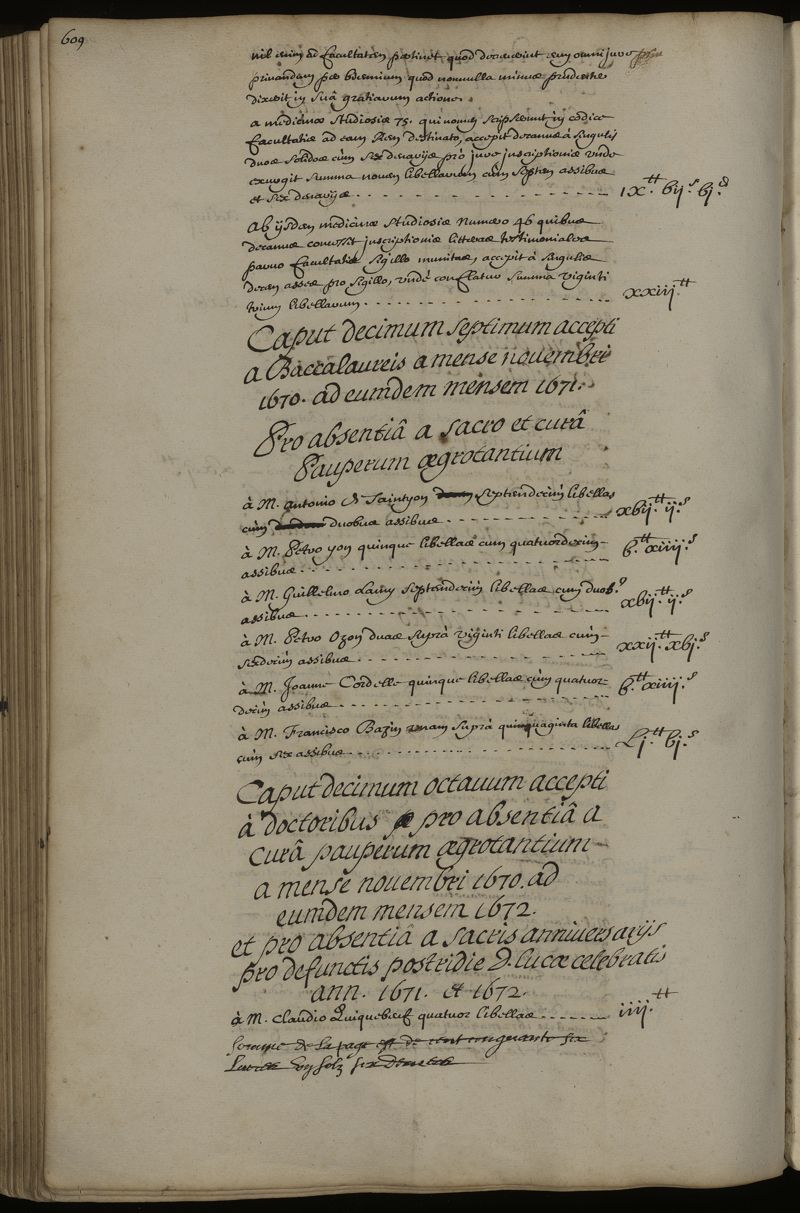 609
nil enim ad Facultatem pertinet quod decreverint eum omni jure
privandum per biennium quod nonnulla minus prudenter
dixerit in suâ gratiarum actione.
a medicinæ studiosis 75. qui nomen scripserunt in codice
Facultatis ad eam rem destinato, accepit decanus à singulis
duos solidos cùm sex denariis pro jure inscriptionis unde
exurgit summa novem libellarum cum septem assibus
et sex denariis - - - - - - ix.tt bij.s bj.d
Ab ijsdem medicinæ studiosis numero 46 quibus
decanus concessit inscriptionis litteras testimoniales
parvo Facultatis sigillo munitas, accepit à singulis
decem asses pro sigillo, unde conflatur summa viginti
trium libellarum - - - - - - xxiij.tt
Caput decimum septimum accepti
a Baccalaureis a mense novembri
1670. ad eumdem mensem 1671.
Pro absentiâ a sacro et curâ
Pauperum ægrotantium
à M. Antonio De Saintyon septemdecim libellas
cùm duobus assibus - - - - - - xbij.tt ij.s
à M. Petro yon quinque libellas cum quatuordecim
assibus - - - - - - b.tt xiiij.s
à M. Guillelmo Lamy septemdecim libellas cum duob.s
assibus - - - - - - xbij.tt ij.s
à M. Petro Ozon duas suprà viginti libellas cùm
sexdecim assibus - - - - - - xxij.tt xbj.s
à M. Joanne Cordelle quinque libellas cùm quatuor-
decim assibus - - - - - - b.tt xiiij.s
à M. Francisco Bazin unam suprà quinquaginta libellas
cùm sex assibus - - - - - - Lj.tt bj.s
Caput decimum octavum accepti
à doctoribus pro absentiâ a
curâ pauperum ægrotantium
a mense novembri 1670. ad
eumdem mensem 1672.
et pro absentiâ a sacris anniversarijs
pro defunctis postridie D. lucæ celebratis
ann. 1671. et 1672.
à M. Claudio Quiquebeuf quatuor libellas - - - - iiij.tt
somme de la page est de cent cinquante six
Livres bij solz six deniers